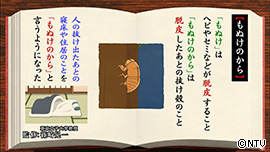 【もぬけのから】
「もぬけ」は
ヘビやセミなどが脱皮すること
「もぬけのから」は
脱皮したあとの抜け殻のこと
人の抜け出たあとの
寝床や住居のことを
「もぬけのから」と
言うようになった
©NTV